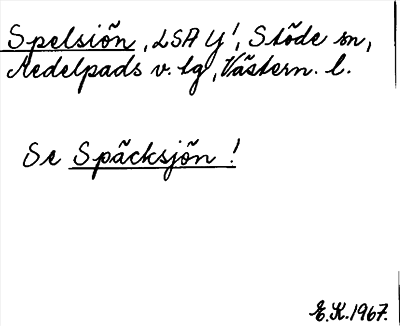 Spelsiön, LSA Y!, Stöde sn,
Medelpads v. tg, Västern. l.
Se Späcksjön!
E.K. 1967.